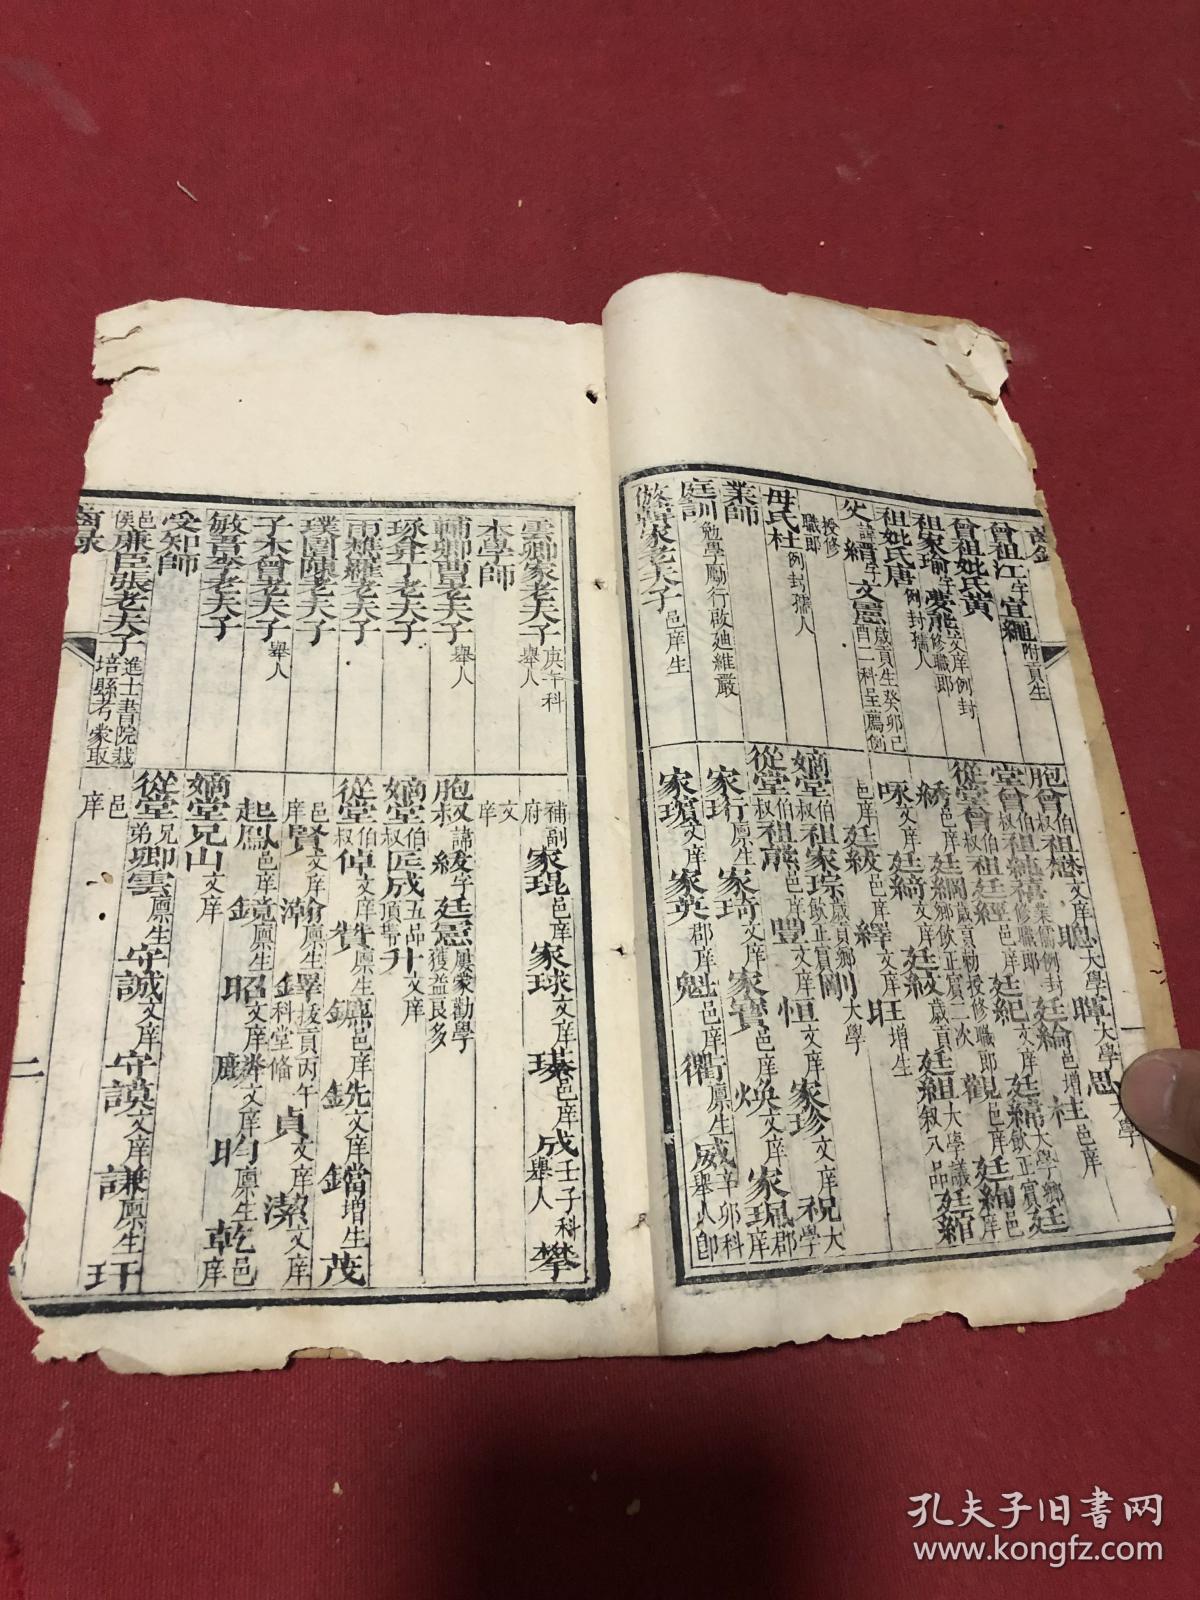 曾祖江字宣繩附貢生
曾祖妣氏黃
祖家瑜字夢熊文庠例封修職郎
祖妣氏唐例封孺人
父諱縉字文憲歲貢生癸卯己酉二科呈薦例
授修職郎
母氏杜例封孺人
業師
庭訓勉學勵行啟迪維嚴
家老夫子邑庠生
胞曾伯叔祖懋文庠聰大學暉大學思大學
堂曾伯叔祖純禧業儒例封修職郎廷綸邑增柱邑庠
從堂曾伯叔祖廷經邑庠廷紀文庠廷緯大學鄉飲正賓廷
綉邑庠廷綱歲貢勅授修職郎觀邑庠廷絢邑庠
啄文庠廷綺文庠廷紋歲貢廷組大學議叙八品廷綰
邑庠廷級邑庠繹文庠旺增生
嫡堂伯叔祖家琮歲貢鄉飲正賓剛大學
從堂伯叔祖熊邑庠豐文庠恒文庠家珍文庠祝大學
家珩廩生家琦文庠家寶邑庠煥文庠家珮郡庠
家璸文庠家英郡庠魁邑庠衢廩生威辛卯科舉人即
雲卿家老夫子庚午科舉人
本學師
輔卿曹老夫子舉人
琢弇丁老夫子
雨蕉羅老夫子
璞園陳老夫子
子木曾老夫子舉人
敏吾李老夫子
受知師
邑侯廉臣張老夫子進士書院栽培縣考蒙取
齒錄
補副府家琨邑庠家球文庠璂邑庠成壬子科舉人攀
文庠
胞叔諱紱字廷憲屢蒙勸學獲益良多
嫡堂伯叔匠成五品頂帶升文庠
從堂伯叔倬文庠贊廩生鑣邑庠銑文庠鐺增生茂
邑庠賢文庠瀚廩生鐸拔貢丙午科堂備貞文庠潔文庠
起鳳邑庠鏡廩生昭文庠麟文庠昀廩生乾邑庠
嫡堂兄山文庠
從堂兄弟卿雲廩生守誠文庠守謨文庠謙廩生玕
邑庠
二
孔夫子旧书网
www.kongfz.com